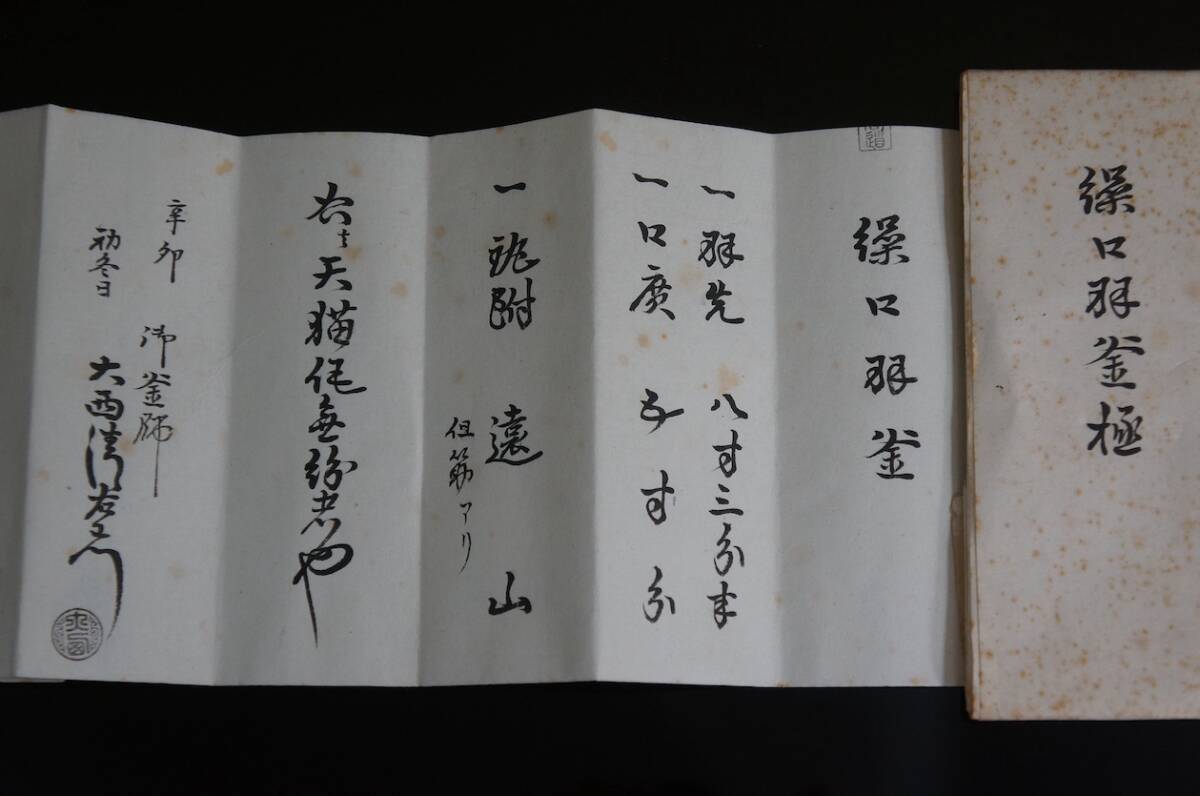 繰口羽釜極
繰口羽釜
一 羽先 八寸三分半
一 口廣 五寸分
一 鐶附 遠山
但筋アリ
右之天猫作無紛者也
辛卯
初冬日
御釜師
大西清右衛門